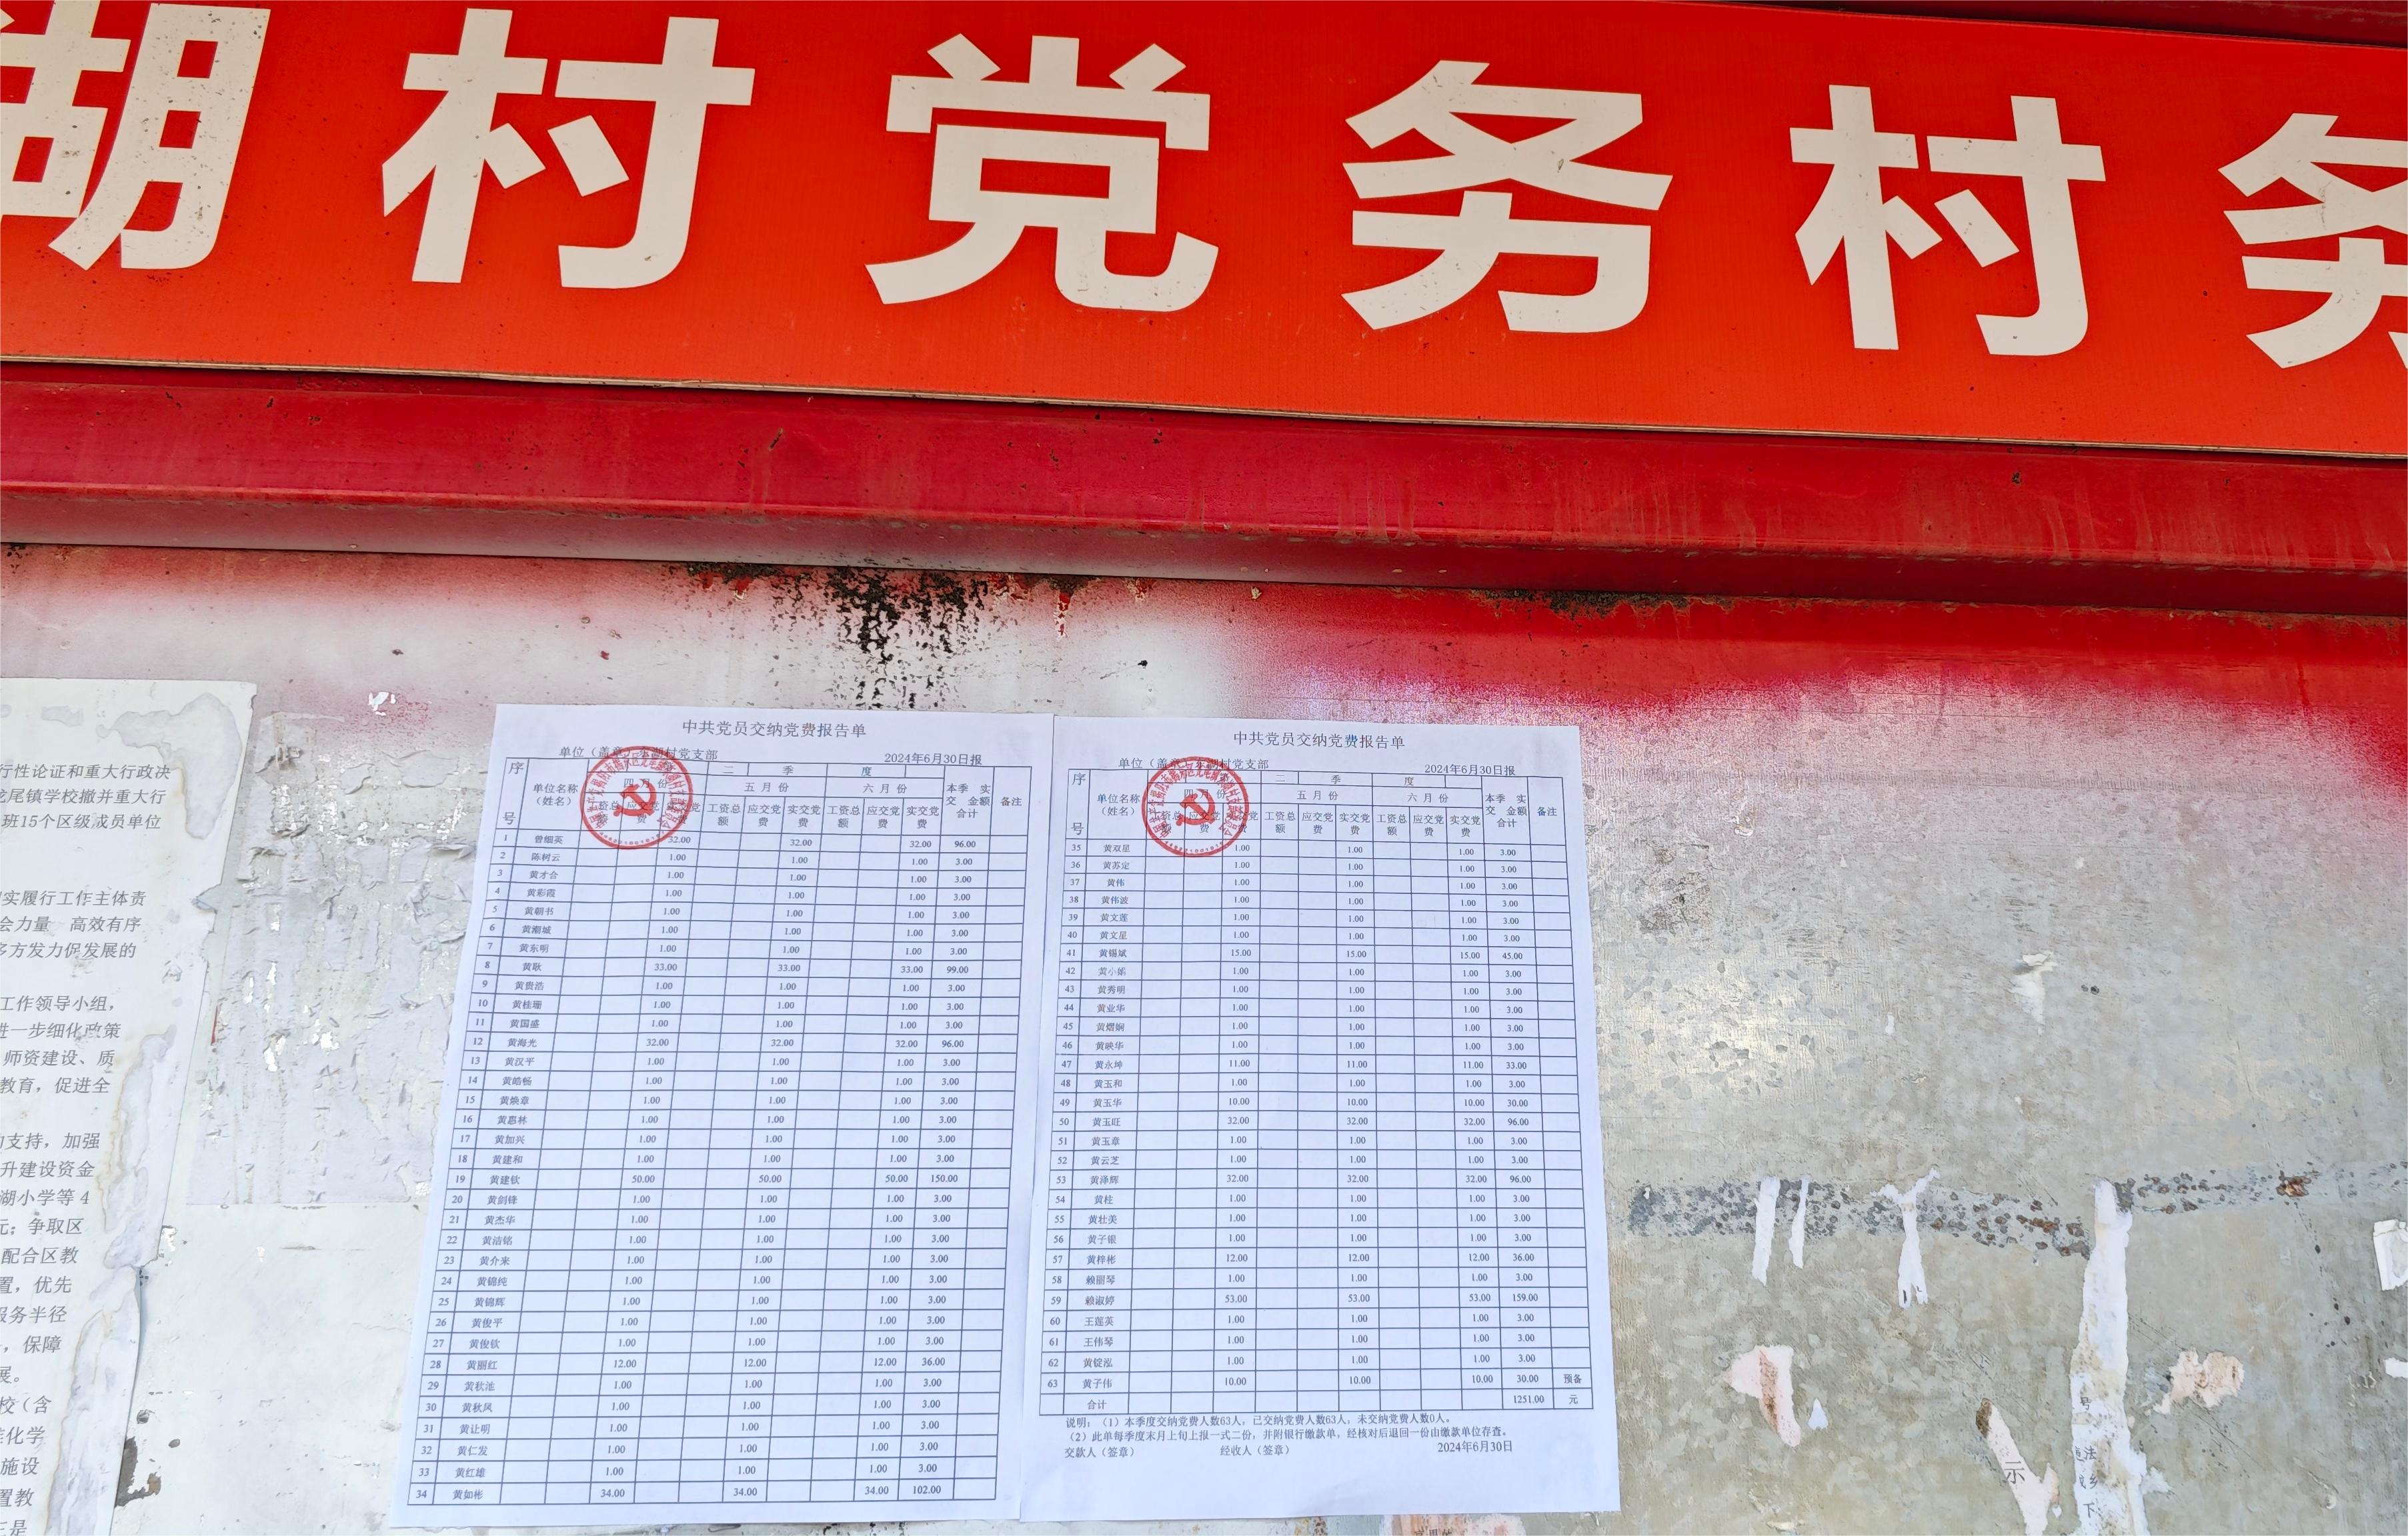 湖村党务村务
行性论证和重大行政决
龙尾镇学校撤并重大行
班15个区级成员单位
实履行工作主体责
会力量 高效有序
多方发力促发展的
工作领导小组，
进一步细化政策
师资建设、质
教育，促进全
支持，加强
升建设资金
湖小学等 4
元；争取区
配合区教
置，优先
服务半径
，保障
展。
校（含
准化学
施设
置教
是
中共党员交纳党费报告单
单位（盖章）东湖村党支部 2024年6月30日报
序号 单位名称（姓名） 二 季 度 本季 实交 金额合计 备注
四 月 份 五 月 份 六 月 份
工资总额 应交党费 实交党费 工资总额 应交党费 实交党费 工资总额 应交党费 实交党费
1 曾细英 32.00 32.00 32.00 96.00
2 陈树云 1.00 1.00 1.00 3.00
3 黄才合 1.00 1.00 1.00 3.00
4 黄彩霞 1.00 1.00 1.00 3.00
5 黄朝书 1.00 1.00 1.00 3.00
6 黄潮城 1.00 1.00 1.00 3.00
7 黄东明 1.00 1.00 1.00 3.00
8 黄耿 33.00 33.00 33.00 99.00
9 黄贵浩 1.00 1.00 1.00 3.00
10 黄桂珊 1.00 1.00 1.00 3.00
11 黄国盛 1.00 1.00 1.00 3.00
12 黄海光 32.00 32.00 32.00 96.00
13 黄汉平 1.00 1.00 1.00 3.00
14 黄皓畅 1.00 1.00 1.00 3.00
15 黄焕章 1.00 1.00 1.00 3.00
16 黄惠林 1.00 1.00 1.00 3.00
17 黄加兴 1.00 1.00 1.00 3.00
18 黄建和 1.00 1.00 1.00 3.00
19 黄建钦 50.00 50.00 50.00 150.00
20 黄剑锋 1.00 1.00 1.00 3.00
21 黄杰华 1.00 1.00 1.00 3.00
22 黄洁铭 1.00 1.00 1.00 3.00
23 黄介来 1.00 1.00 1.00 3.00
24 黄锦纯 1.00 1.00 1.00 3.00
25 黄锦辉 1.00 1.00 1.00 3.00
26 黄俊平 1.00 1.00 1.00 3.00
27 黄俊钦 1.00 1.00 1.00 3.00
28 黄丽红 12.00 12.00 12.00 36.00
29 黄秋池 1.00 1.00 1.00 3.00
30 黄秋凤 1.00 1.00 1.00 3.00
31 黄让明 1.00 1.00 1.00 3.00
32 黄仁发 1.00 1.00 1.00 3.00
33 黄红雄 1.00 1.00 1.00 3.00
34 黄如彬 34.00 34.00 34.00 102.00
中共党员交纳党费报告单
单位（盖章）东湖村党支部 2024年6月30日报
序号 单位名称（姓名） 二 季 度 本季 实交 金额合计 备注
四 月 份 五 月 份 六 月 份
工资总额 应交党费 实交党费 工资总额 应交党费 实交党费 工资总额 应交党费 实交党费
35 黄双星 1.00 1.00 1.00 3.00
36 黄苏定 1.00 1.00 1.00 3.00
37 黄伟 1.00 1.00 1.00 3.00
38 黄伟波 1.00 1.00 1.00 3.00
39 黄文莲 1.00 1.00 1.00 3.00
40 黄文星 1.00 1.00 1.00 3.00
41 黄锡斌 15.00 15.00 15.00 45.00
42 黄小娟 1.00 1.00 1.00 3.00
43 黄秀明 1.00 1.00 1.00 3.00
44 黄业华 1.00 1.00 1.00 3.00
45 黄熠娴 1.00 1.00 1.00 3.00
46 黄映华 1.00 1.00 1.00 3.00
47 黄永坤 11.00 11.00 11.00 33.00
48 黄玉和 1.00 1.00 1.00 3.00
49 黄玉华 10.00 10.00 10.00 30.00
50 黄玉旺 32.00 32.00 32.00 96.00
51 黄玉章 1.00 1.00 1.00 3.00
52 黄云芝 1.00 1.00 1.00 3.00
53 黄泽辉 32.00 32.00 32.00 96.00
54 黄柱 1.00 1.00 1.00 3.00
55 黄壮美 1.00 1.00 1.00 3.00
56 黄子银 1.00 1.00 1.00 3.00
57 黄梓彬 12.00 12.00 12.00 36.00
58 赖丽琴 1.00 1.00 1.00 3.00
59 赖淑婷 53.00 53.00 53.00 159.00
60 王莲英 1.00 1.00 1.00 3.00
61 王伟琴 1.00 1.00 1.00 3.00
62 黄锭泓 1.00 1.00 1.00 3.00
63 黄子伟 10.00 10.00 10.00 30.00 预备
合计 1251.00 元
说明：（1）本季度交纳党费人数63人，已交纳党费人数63人，未交纳党费人数0人。
（2）此单每季度末月上旬上报一式二份，并附银行缴款单，经核对后退回一份由缴款单位存查。
交款人（签章） 经收人（签章） 2024年6月30日
示
号
法
乡
下